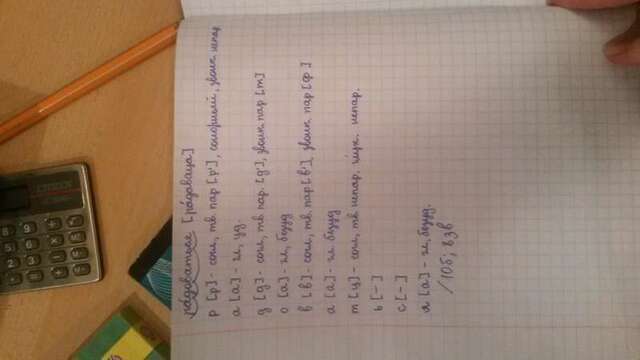 радоваться [ра́доваца]
р [р] - согл, тв. пар [р'], сонорный, звонк непар
а [а] - гл, уд.
д [д] - согл, тв. пар. [д'], звонк пар [т]
о [а] - гл, безуд
в [в] - согл, тв. пар [в'], звонк пар [ф]
а [а] - гл безуд
т [ц] - согл, тв непар, глух. непар.
ь [-]
с [-]
а [а] - гл, безуд.
/10б, 8зв